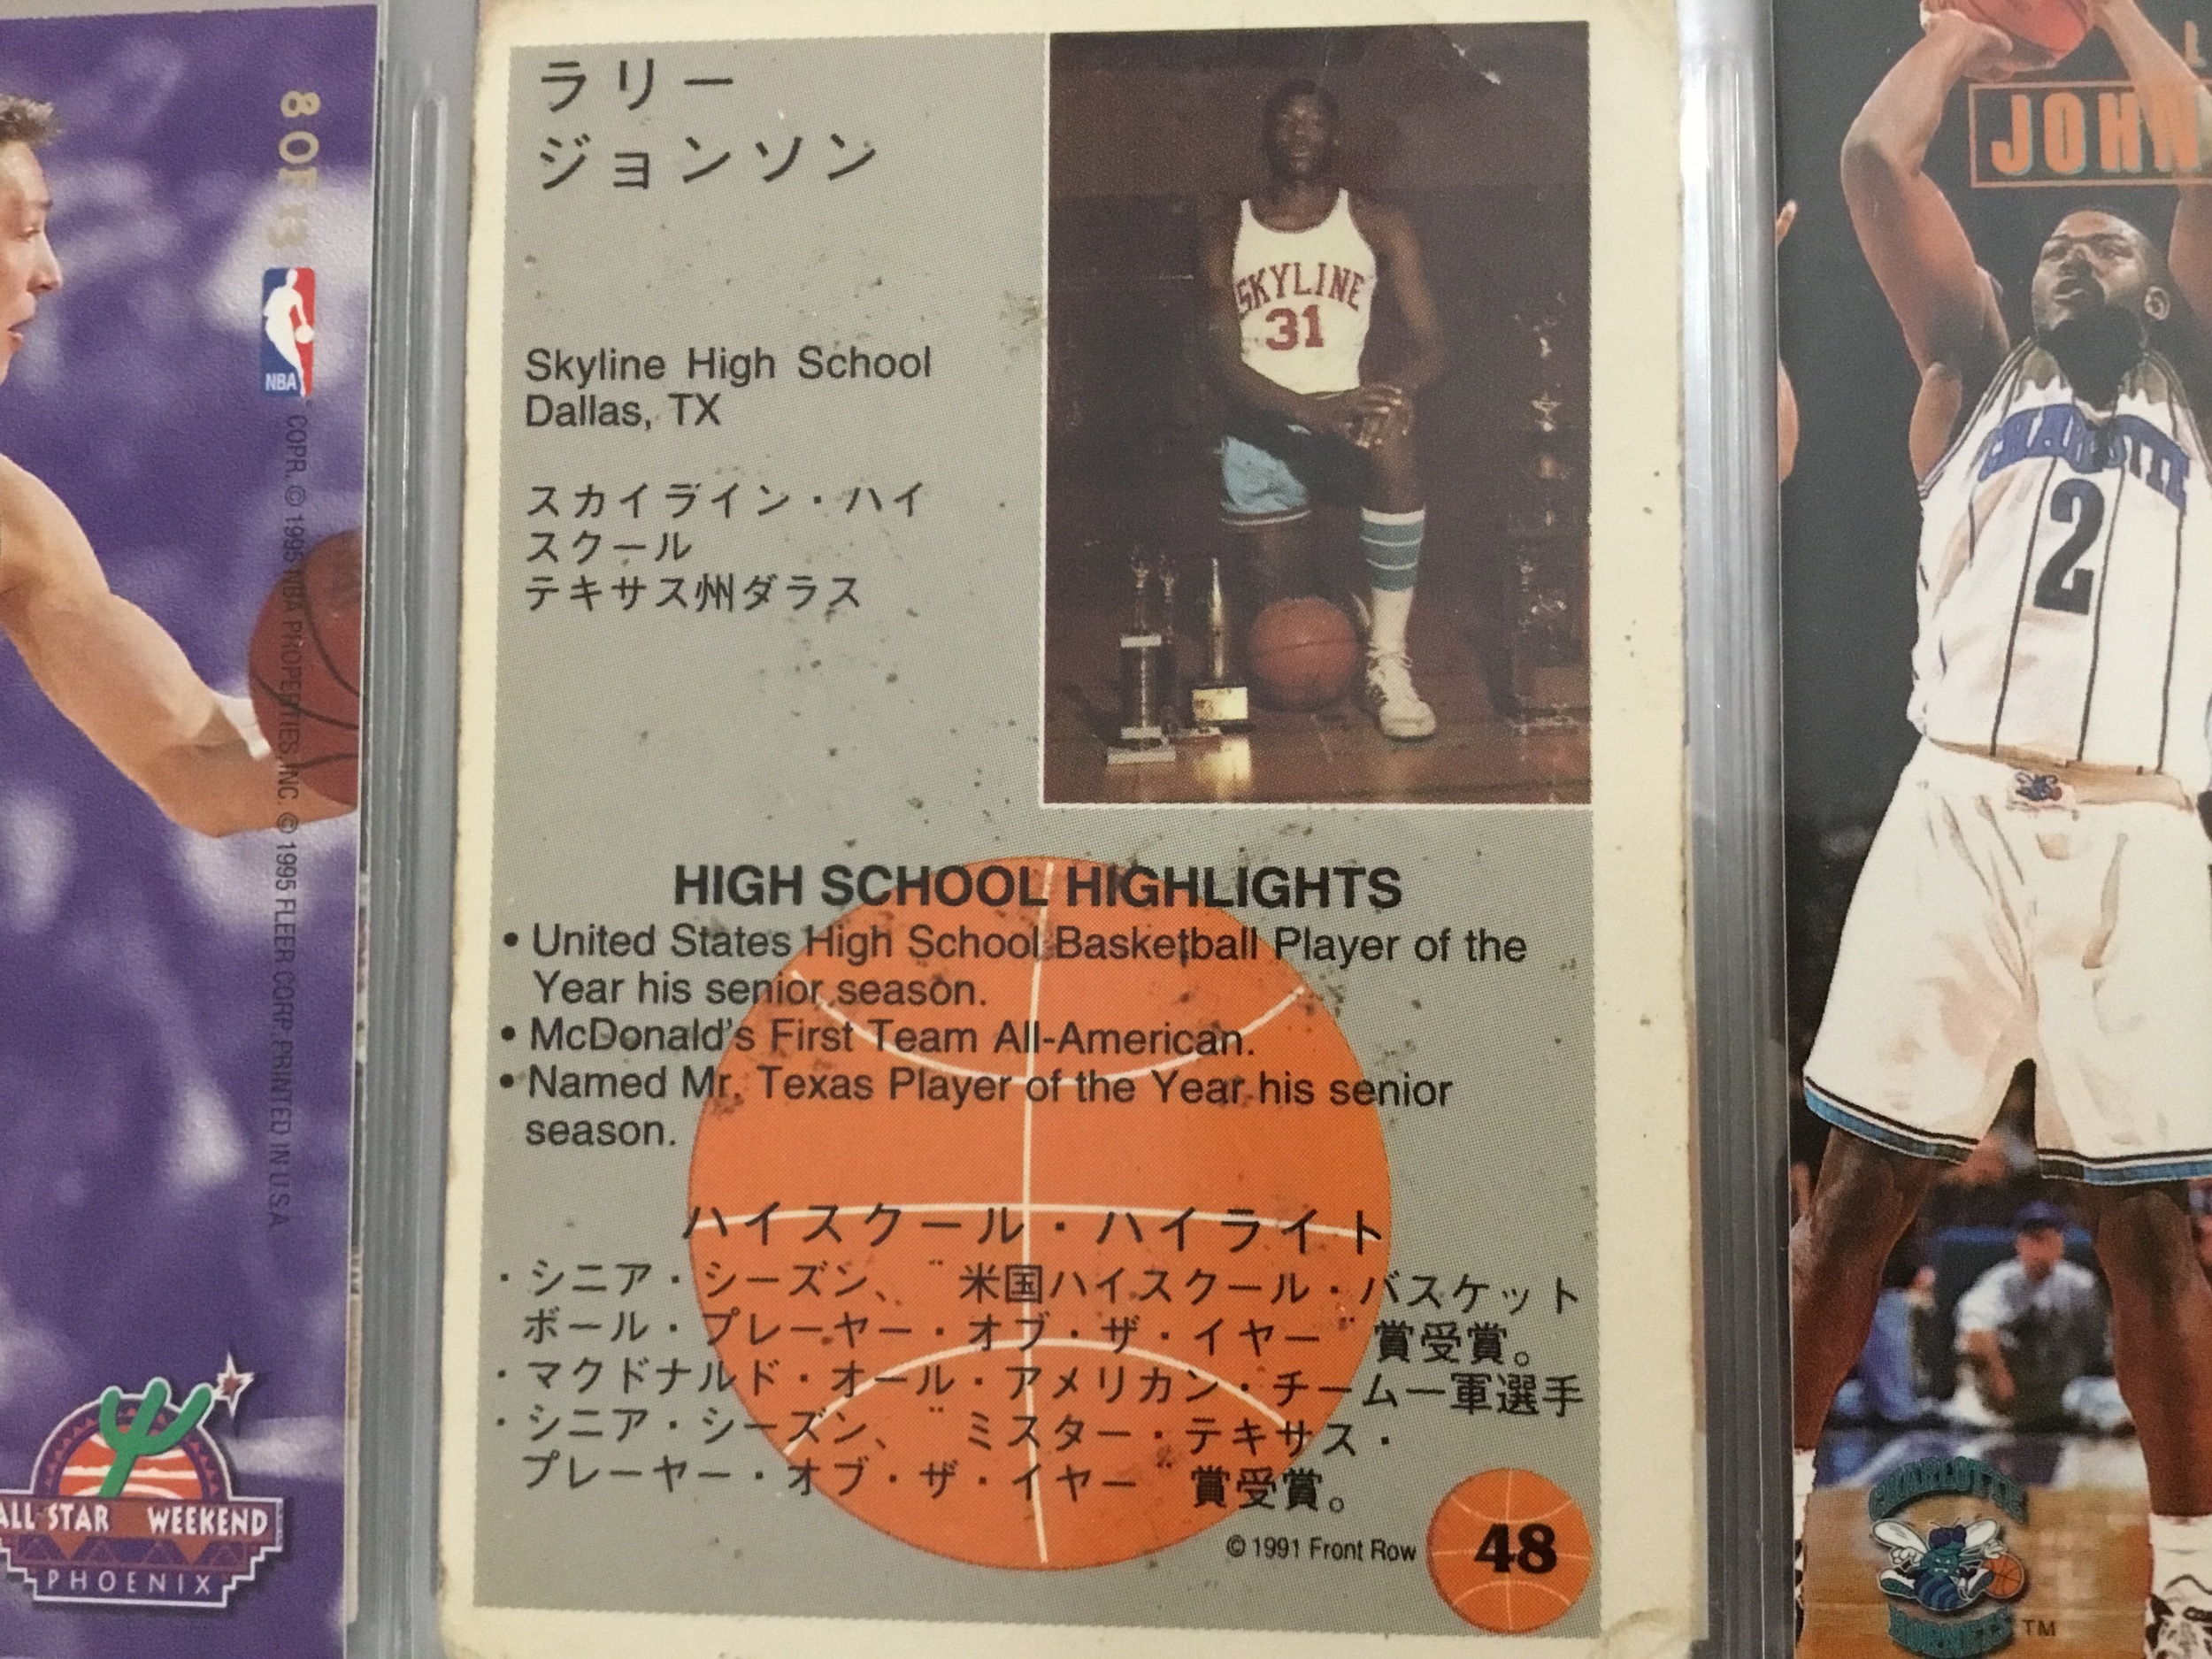 8 OF 13
NBA
COPR. © 1995 NBA PROPERTIES, INC. © 1995 FLEER CORP. PRINTED IN U.S.A
ALL-STAR WEEKEND
PHOENIX
ラリー
ジョンソン
Skyline High School
Dallas, TX
スカイライン・ハイ
スクール
テキサス州ダラス
SKYLINE
31
HIGH SCHOOL HIGHLIGHTS
• United States High School Basketball Player of the
Year his senior season.
• McDonald's First Team All-American.
• Named Mr. Texas Player of the Year his senior
season.
ハイスクール・ハイライト
・シニア・シーズン、¨米国ハイスクール・バスケット
ボール・プレーヤー・オブ・ザ・イヤー¨賞受賞。
・マクドナルド・オール・アメリカン・チーム一軍選手
・シニア・シーズン、¨ミスター・テキサス・
プレーヤー・オブ・ザ・イヤー¨賞受賞。
© 1991 Front Row
48
L
JOHN
CHARLOTTE
2
CHARLOTTE
HORNETS TM